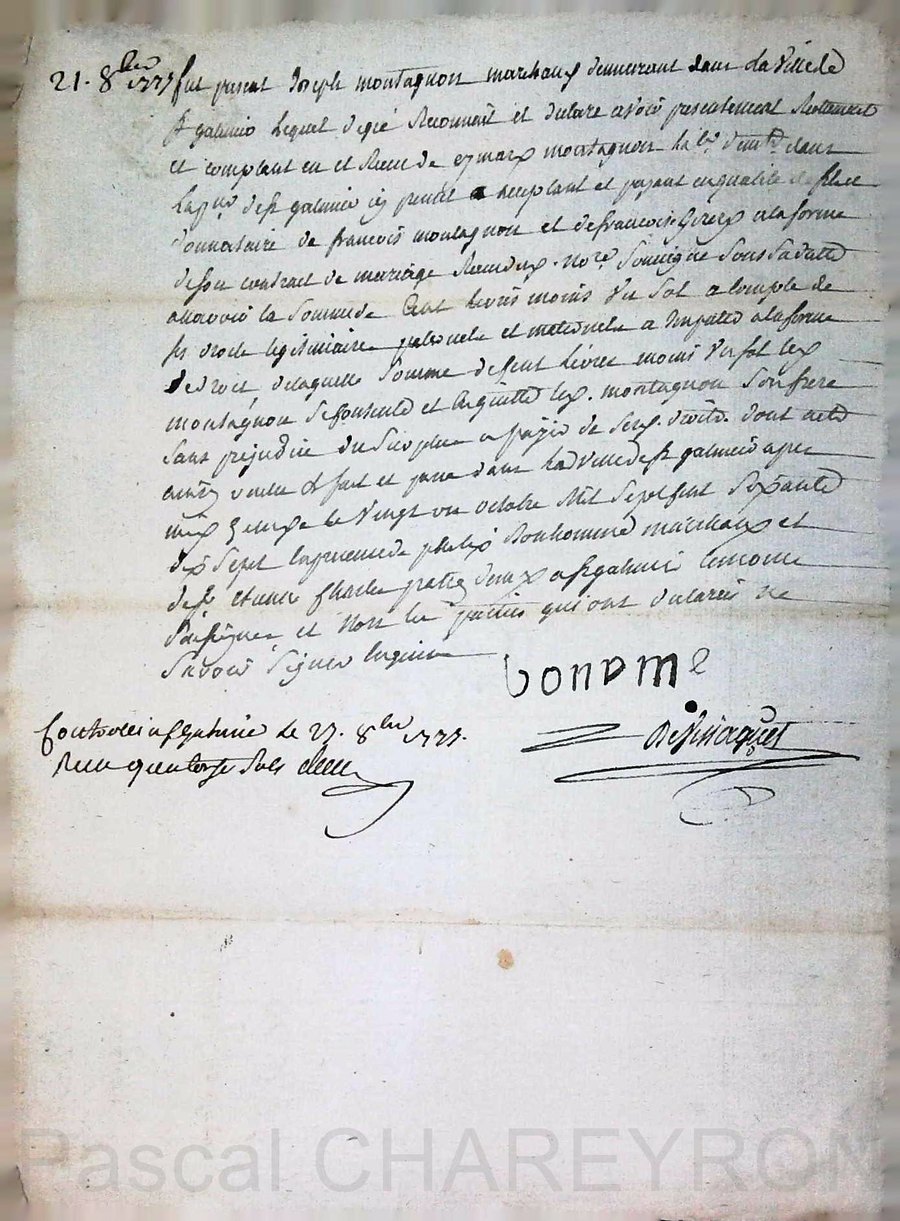 21. 8bre 1777 fut present Joseph montagnon marchand demeurant dans La Ville de
St galmier Lequel de gré Reconnoit et declare avoir presentement Reellement
et comptant eu et Receu de eymard montagnon hab. demt dans
La de St galmier icy present acceptant et payant en qualité de fils et
Donnataire de francois montagnon et de francoise a la forme
de son contract de mariage Receu dud. nore Soussigné Sous Sa datte
a Savoir la Somme de Cent Livres moins Un Sol a Compte de
Ses droits legitimaires paternels et maternels a Imputer a la forme
de droit, de laquelle Somme de Cent Livres moins Un Sol led.
montagnon Se Contente et En quitte led. montagnon Son frere
Sans prejudice du Surplus a payer de Ses droits. dont acte
ainsy voulu et fait et passé dans lad Ville de St galmier apres
midy le Vingt un octobre Mil Sept Cent Soixante
dix Sept En presence de Bonhomme marchand et
de Sr Charles demt a St galmier temoins
Soussignés et Non les parties qui ont declaré ne
Savoir Signer Enquis
bonome
Controllé a St galmier Le 27. 8bre 1777.
Receu quatorze Sols
Despinaquet
Pascal CHAREYRON